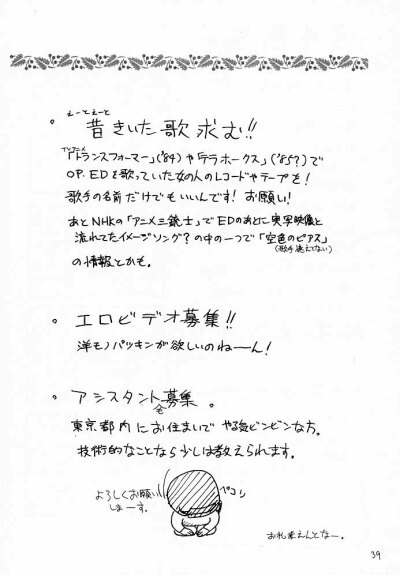 えーとえーと
。昔きいた歌求む!!
TVアニメ
「トランスフォーマー」('84)や「テラホークス」('85?)で
OP.EDを歌っていた女の人のLコードやテープを!
歌手の名前だけでもいいんです! お願い!
あとNHKの「アニメ三銃士」でEDのあとに実写映像と
流れてたイメージソング?の中の一つで「空色のピアス」
(歌手憶えてない)
の情報とかも。
。エロビデオ募集!!
洋モノパツキンが欲しいのねーん!
。アシスタント募集。
東京都内にお住まいで やる気ビンビンな方。
技術的なことなら少しは教えられます。
よろしくお願い
しまーす。
ペコリ
お礼考えんとなー。
39